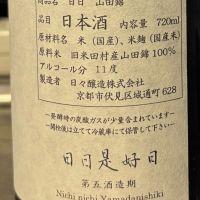 商品名 日日 山田錦
品目 日本酒 内容量 720ml
原材料 米（国産）、米麹（国産）
原料米 旧米田村産山田錦 100%
アルコール分 11度
製造者 日々醸造株式会社
京都市伏見区城通町 628
―発酵時の炭酸ガスが少量含まれています―
―開栓後は立てて冷蔵庫にて保管して下さい―
日日是好日
第五酒造期
Nichi nichi Yamadanishiki